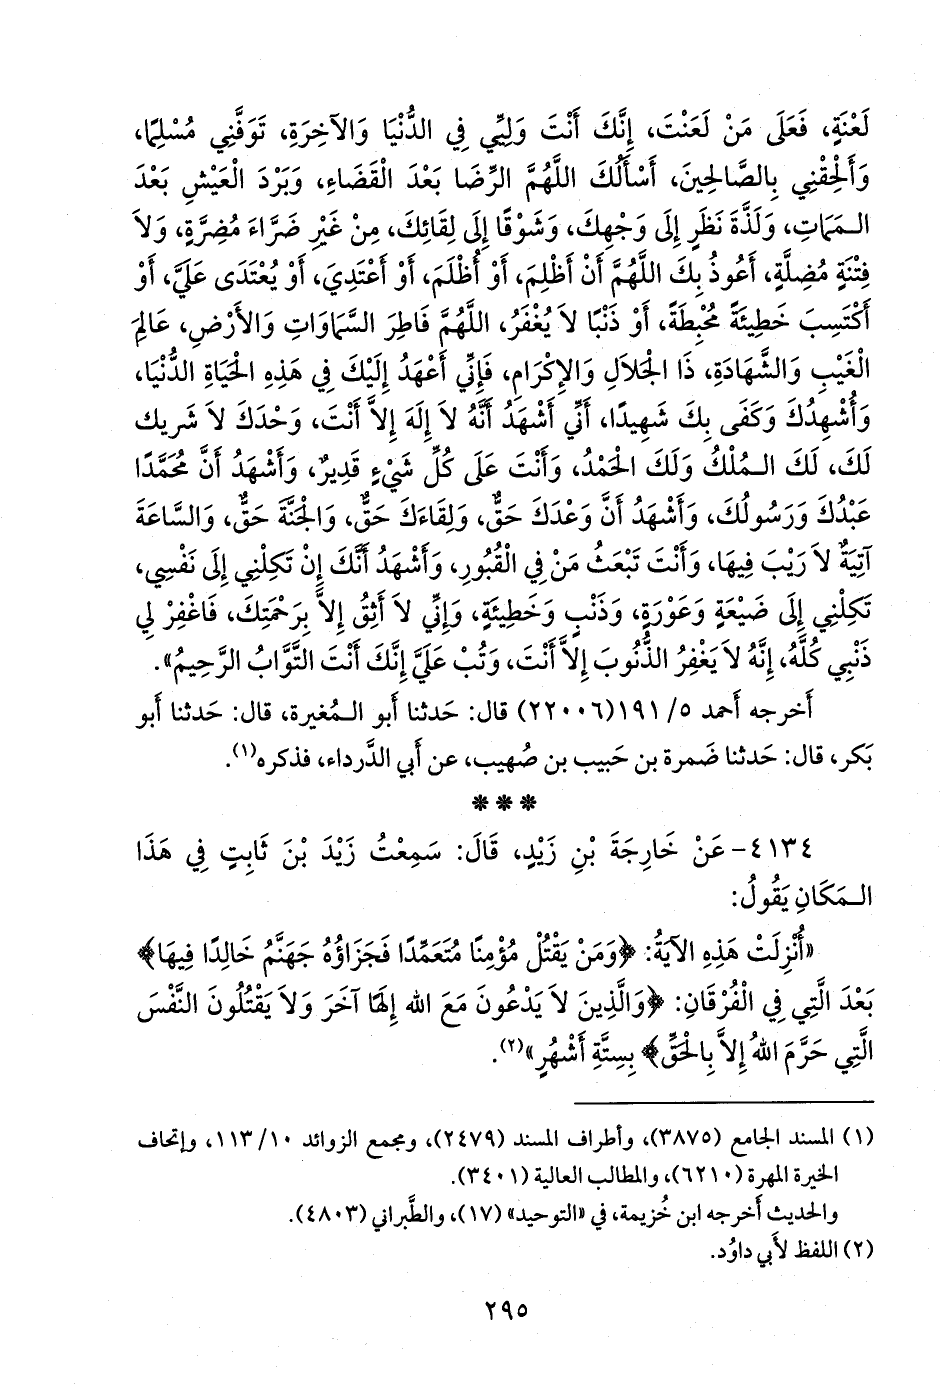 لَعْنَةٍ، فَعَلَى مَنْ لَعَنْتَ، إِنَّكَ أَنْتَ وَلِيِّي فِي الدُّنْيَا وَالآخِرَةِ، تَوَفَّنِي مُسْلِمًا،
وَأَلْحِقْنِي بِالصَّالِحِينَ، أَسْأَلُكَ اللَّهُمَّ الرِّضَا بَعْدَ الْقَضَاءِ، وَبَرْدَ الْعَيْشِ بَعْدَ
الـمَمَاتِ، وَلَذَّةَ نَظَرٍ إِلَى وَجْهِكَ، وَشَوْقًا إِلَى لِقَائِكَ، مِنْ غَيْرِ ضَرَّاءَ مُضِرَّةٍ، وَلاَ
فِتْنَةٍ مُضِلَّةٍ، أَعُوذُ بِكَ اللَّهُمَّ أَنْ أَظْلِمَ، أَوْ أُظْلَمَ، أَوْ أَعْتَدِيَ، أَوْ يُعْتَدَى عَلَيَّ، أَوْ
أَكْتَسِبَ خَطِيئَةً مُحْبِطَةً، أَوْ ذَنْبًا لاَ يُغْفَرُ، اللَّهُمَّ فَاطِرَ السَّمَاوَاتِ وَالأَرْضِ، عَالِمَ
الْغَيْبِ وَالشَّهَادَةِ، ذَا الْجَلاَلِ وَالإِكْرَامِ، فَإِنِّي أَعْهَدُ إِلَيْكَ فِي هَذِهِ الْحَيَاةِ الدُّنْيَا،
وَأُشْهِدُكَ وَكَفَى بِكَ شَهِيدًا، أَنِّي أَشْهَدُ أَنَّهُ لاَ إِلَهَ إِلاَّ أَنْتَ، وَحْدَكَ لاَ شَرِيكَ
لَكَ، لَكَ الـمُلْكُ وَلَكَ الْحَمْدُ، وَأَنْتَ عَلَى كُلِّ شَيْءٍ قَدِيرٌ، وَأَشْهَدُ أَنَّ مُحَمَّدًا
عَبْدُكَ وَرَسُولُكَ، وَأَشْهَدُ أَنَّ وَعْدَكَ حَقٌّ، وَلِقَاءَكَ حَقٌّ، وَالْجَنَّةَ حَقٌّ، وَالسَّاعَةَ
آتِيَةٌ لاَ رَيْبَ فِيهَا، وَأَنْتَ تَبْعَثُ مَنْ فِي الْقُبُورِ، وَأَشْهَدُ أَنَّكَ إِنْ تَكِلْنِي إِلَى نَفْسِي،
تَكِلْنِي إِلَى ضَيْعَةٍ وَعَوْرَةٍ، وَذَنْبٍ وَخَطِيئَةٍ، وَإِنِّي لاَ أَثِقُ إِلاَّ بِرَحْمَتِكَ، فَاغْفِرْ لِي
ذَنْبِي كُلَّهُ، إِنَّهُ لاَ يَغْفِرُ الذُّنُوبَ إِلاَّ أَنْتَ، وَتُبْ عَلَيَّ إِنَّكَ أَنْتَ التَّوَّابُ الرَّحِيمُ».
أَخرجه أَحمد ٥/ ١٩١(٢٢٠٠٦) قال: حَدثنا أَبو الـمُغيرة، قال: حَدثنا أَبو
بَكر، قال: حَدثنا ضَمرة بن حَبيب بن صُهيب، عن أَبي الدَّرداء، فذكره(١).
* * *
٤١٣٤- عَنْ خَارِجَةَ بْنِ زَيْدٍ، قَالَ: سَمِعْتُ زَيْدَ بْنَ ثَابِتٍ فِي هَذَا
الـمَكَانِ يَقُولُ:
«أُنْزِلَتْ هَذِهِ الآيَةُ: ﴿وَمَنْ يَقْتُلْ مُؤْمِنًا مُتَعَمِّدًا فَجَزَاؤُهُ جَهَنَّمُ خَالِدًا فِيهَا﴾
بَعْدَ الَّتِي فِي الْفُرْقَانِ: ﴿وَالَّذِينَ لاَ يَدْعُونَ مَعَ الله إِلَهًا آخَرَ وَلاَ يَقْتُلُونَ النَّفْسَ
الَّتِي حَرَّمَ اللهُ إِلاَّ بِالْحَقِّ﴾ بِسِتَّةِ أَشْهُرٍ»(٢).
(١) المسند الجامع (٣٨٧٥)، وأطراف المسند (٢٤٧٩)، ومجمع الزوائد ١٠/ ١١٣، وإتحاف
الخيرة المهرة (٦٢١٠)، والمطالب العالية (٣٤٠١).
والحديث أَخرجه ابن خُزيمة، في «التوحيد» (١٧)، والطَّبراني (٤٨٠٣).
(٢) اللفظ لأَبي داوُد.
٢٩٥